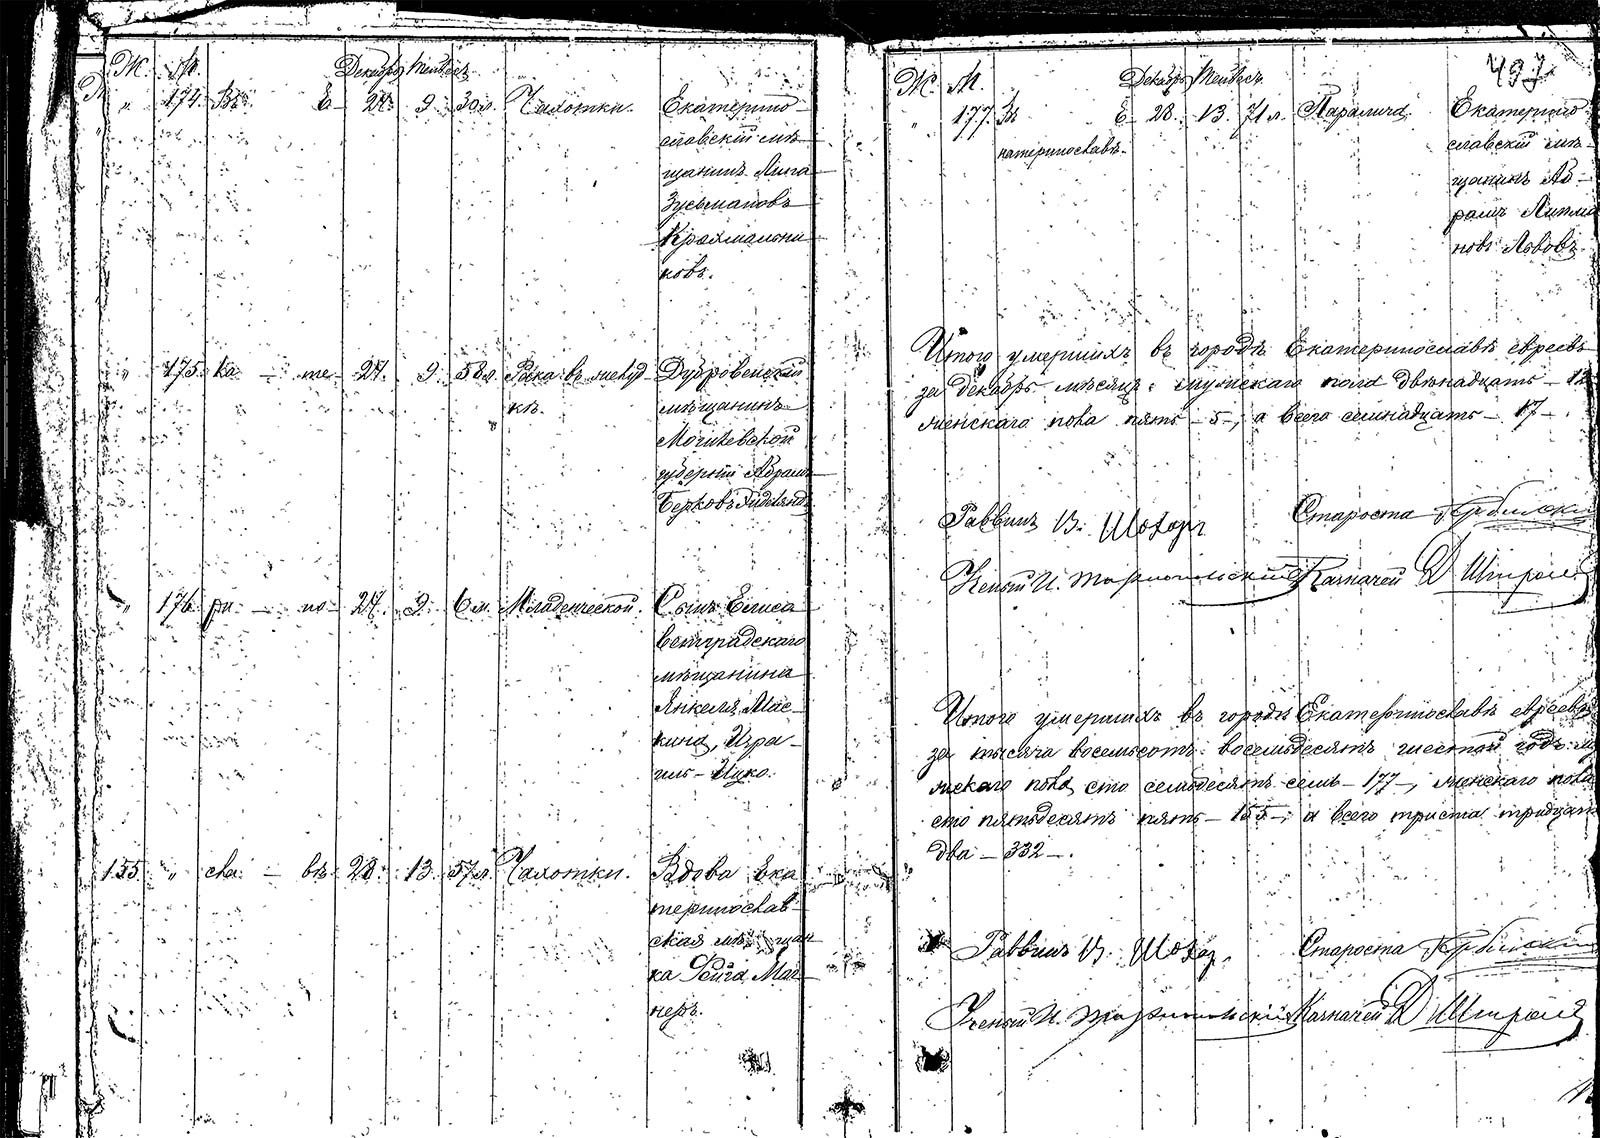 Ж. М. Декабрь Тейвесъ
" 174. Въ Е- 24. 9. 30 л. Чахотки. Екатерино-
славскій мѣ-
щанинъ
Зусьмановъ
Крахмальни-
ковъ.
" 175. ка - те- 24. 9. 58 л. Рака въ желуд- Дубровенскій
кѣ. мѣщанинъ
Могилевской
губерніи Абрамъ
Берковъ
" 176. ри - но- 24. 9. 6 м. Младенческой. Сынъ Елиса-
ветградскаго
мѣщанина
Янкеля Мас-
кина, Изра-
иль-Ицко.
155 " сла - вѣ 28. 13. 57 л. Чахотки. Вдова Ека-
теринослав-
ская мѣщан-
ка Рейга Маг-
неръ.
497
Ж. М. Декабрь Тейвесъ
" 177. Въ Е- 28. 13. 71 л. Паралича. Екатерино-
катеринославѣ. славскій мѣ-
щанинъ Аб-
рамъ Липма-
новъ Львовъ.
Итого умершихъ въ городѣ Екатеринославѣ евреевъ
за декабрь мѣсяцъ: мужскаго пола двѣнадцать - 12
женскаго пола пять - 5 -, а всего семнадцать - 17 -.
Раввинъ В. Шохоръ Староста
Ученый И. Казначей Д
Итого умершихъ въ городѣ Екатеринославѣ евреевъ
за тысяча восемьсотъ восемьдесятъ шестой годъ: му-
жскаго пола сто семьдесятъ семь - 177 -, женскаго пола
сто пятьдесятъ пять - 155 -, а всего триста тридцать
два - 332 -.
Раввинъ В. Шохоръ. Староста
Ученый И. Казначей Д